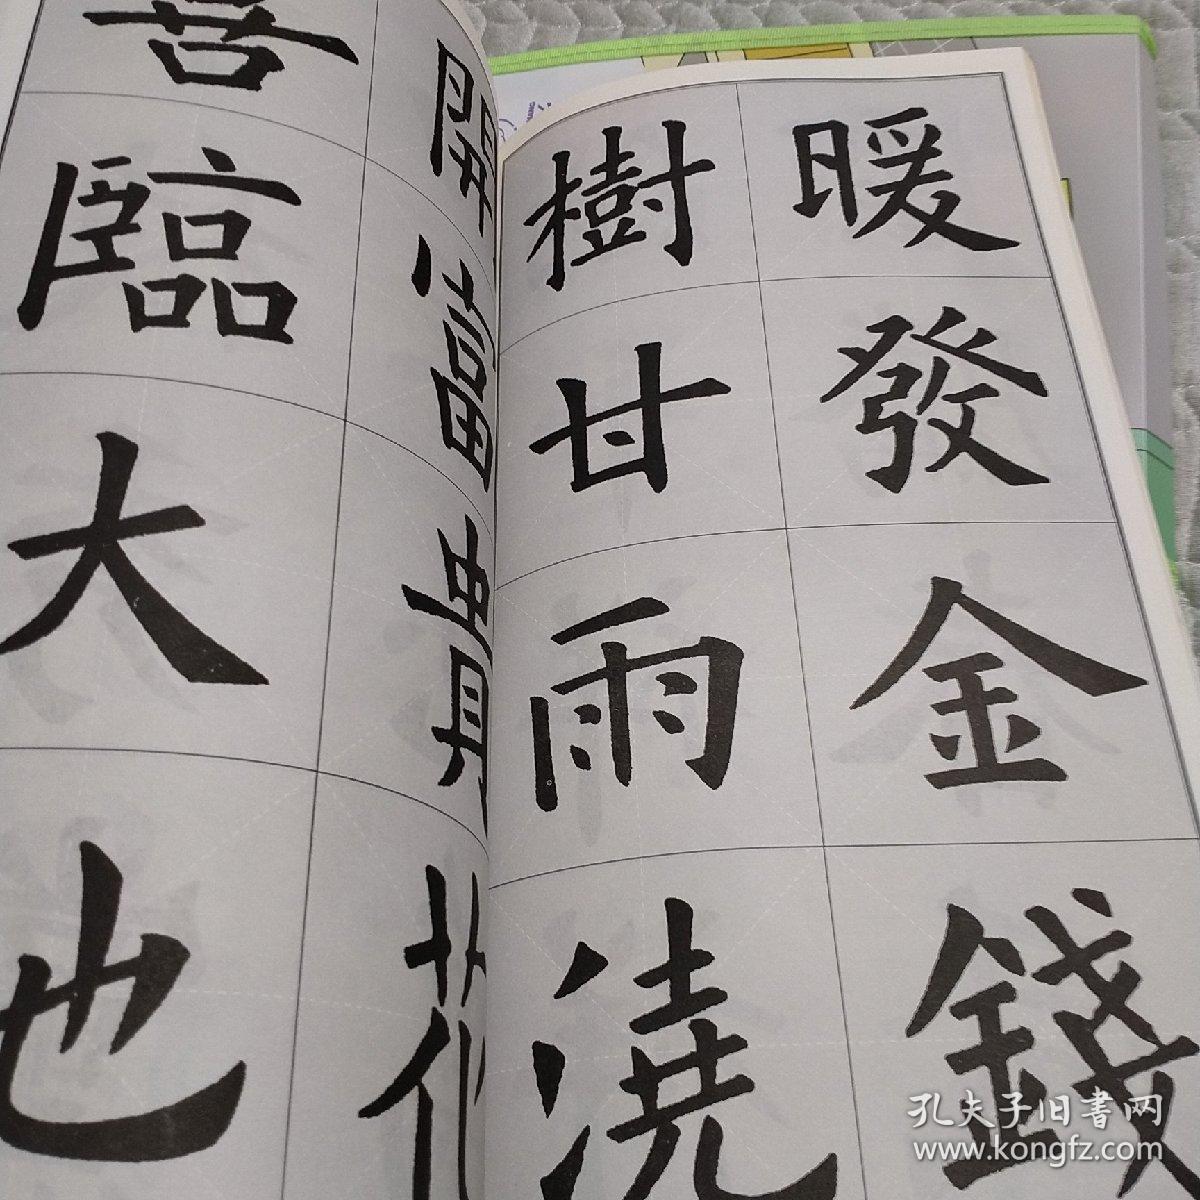 暖發金錢
樹甘雨澆
開富貴花
臨大也
孔夫子旧書网
www.kongfz.com